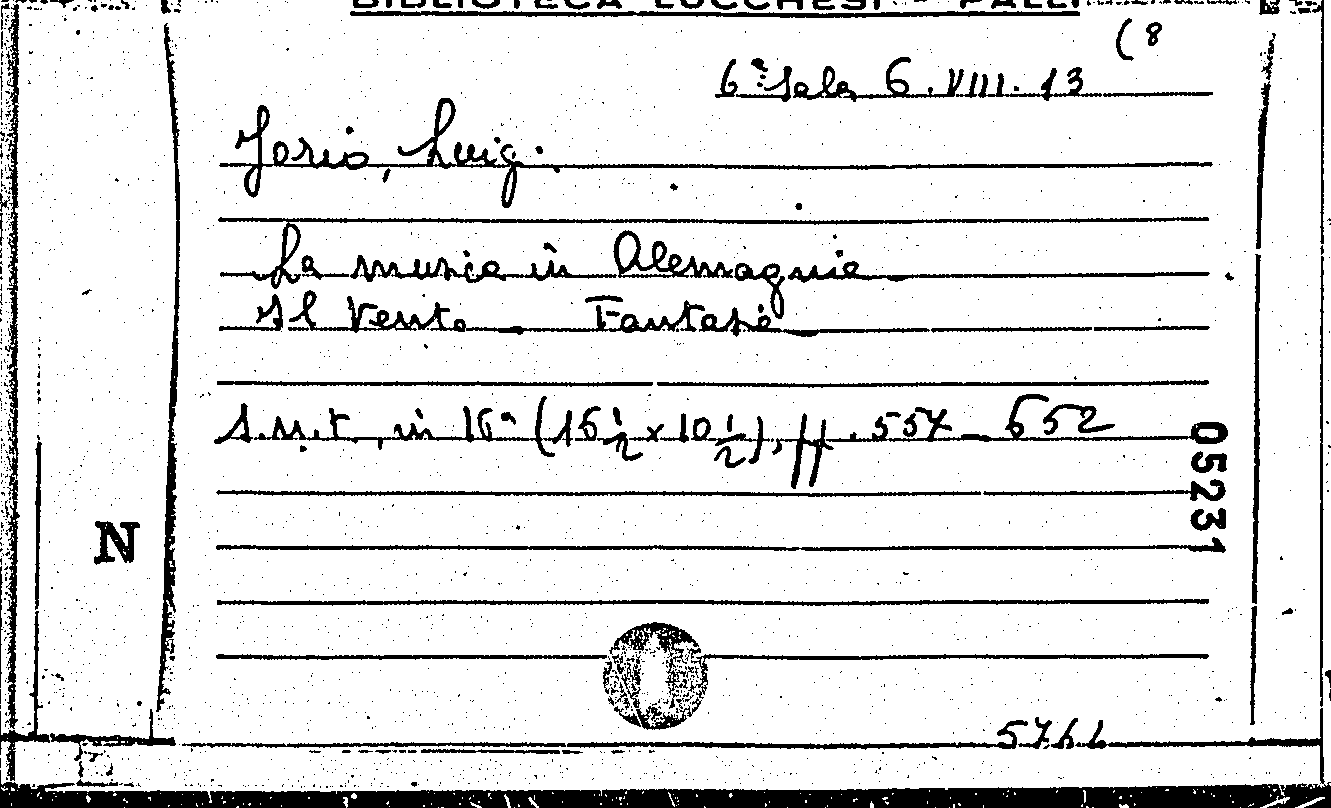 BIBLIOTECA LUCCHESI - PALLI
(8
6ª Sala 6.VIII.13
Jorio, Luigi.
La musica in Alemagnia -
Il Vento - Fantasie -
s.n.t., in 16º (16 1/2 x 10 1/2), pp. 557 - 652
05231
N